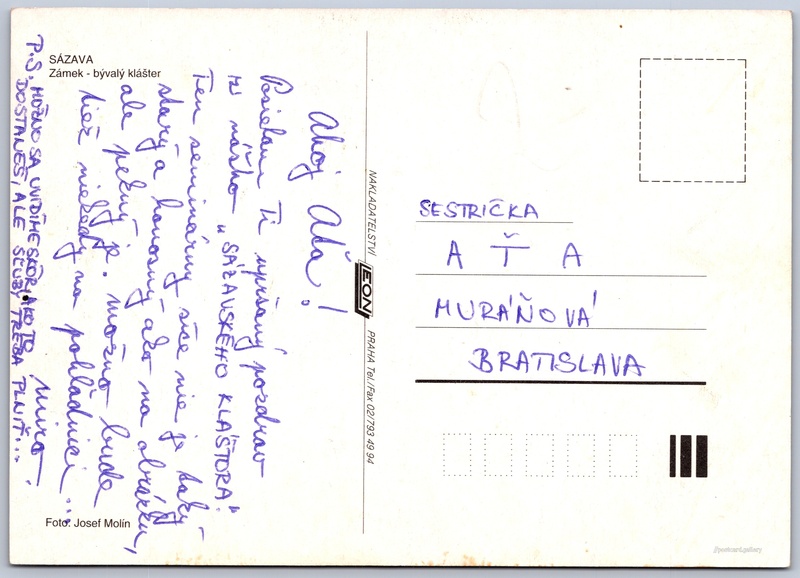 SÁZAVA
Zámek - bývalý klášter
Ahoj Aťa!
Posielam Ti úprimný pozdrav
zo nášho „SÁZAVSKÉHO KLÁŠTORA."
Ten seminárny síce nie je taký
starý a honosný ako na obrázku,
ale pekný je. Možno bude
tiež niekedy na pohľadnici...
Miro.
P.S. MOŽNO SA UVIDÍME SKÔR, AKO TO
DOSTANEŠ, ALE SĽUBY TREBA PLNIŤ...
Foto: Josef Molín
NAKLADATELSTVÍ LEON PRAHA Tel./Fax 02/793 49 94
SESTRIČKA
AŤA
MURÁŇOVÁ
BRATISLAVA
postcard.gallery